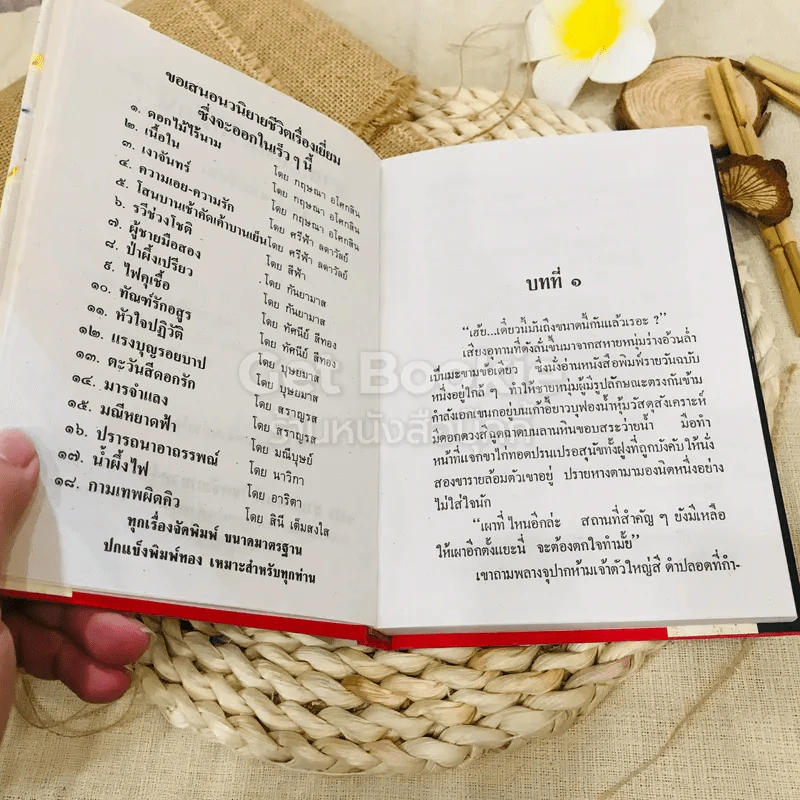 ขอเสนอนวนิยายชีวิตเรื่องเยี่ยม
ซึ่งจะออกในเร็ว ๆ นี้
๑. ดอกไม้ไร้นาม โดย กฤษณา อโศกสิน
๒. เนื้อใน โดย กฤษณา อโศกสิน
๓. เงาจันทร์ โดย กฤษณา อโศกสิน
๔. ความเอย-ความรัก โดย ศรีฟ้า ลดาวัลย์
๕. โสนบานเช้าคัดเค้าบานเย็น โดย ศรีฟ้า ลดาวัลย์
๖. รวีช่วงโชติ โดย สีฟ้า
๗. ผู้ชายมือสอง โดย กันยามาส
๘. ป่าผึ้งเปรียว โดย กันยามาส
๙. ไฟคุเชื้อ โดย ทัศนีย์ สีทอง
๑๐. ทัณฑ์รักอสูร โดย ทัศนีย์ สีทอง
๑๑. หัวใจปฏิวัติ โดย บุษยมาส
๑๒. แรงบุญรอยบาป โดย บุษยมาส
๑๓. ตะวันสีดอกรัก โดย สราญรส
๑๔. มารจำแลง โดย สราญรส
๑๕. มณีหยาดฟ้า โดย มณีบุษย์
๑๖. ปรารถนาอาถรรพณ์ โดย นาวิกา
๑๗. น้ำผึ้งไฟ โดย อาริตา
๑๘. กามเทพผิดคิว โดย สินี เต็มสงใส
ทุกเรื่องจัดพิมพ์ ขนาดมาตรฐาน
ปกแข็งพิมพ์ทอง เหมาะสำหรับทุกท่าน
บทที่ ๑
“เฮ้ย...เดี๋ยวนี้มันถึงขนาดนี้กันแล้วเรอะ ?”
เสียงอุทานที่ดังลั่นขึ้นมาจากสหายหนุ่มร่างอ้วนล่ำ
เป็นมะขามข้อเดียว ซึ่งนั่งอ่านหนังสือพิมพ์รายวันฉบับ
หนึ่งอยู่ใกล้ ๆ ทำให้ชายหนุ่มผู้มีรูปลักษณะตรงกันข้าม
กำลังเอกเขนกอยู่บนเก้าอี้ยาวบุฟองน้ำหุ้มวัสดุสังเคราะห์
มีดอกดวงสีฉูดฉาดบนลานหินขอบสระว่ายน้ำ มือทำ
หน้าที่แจกขาไก่ทอดปรนเปรอสุนัขทั้งฝูงที่ถูกบังคับให้นั่ง
สองขารายล้อมตัวเขาอยู่ ปรายหางตามามองนิดหนึ่งอย่าง
ไม่ใส่ใจนัก
“เผาที่ไหนอีกล่ะ สถานที่สำคัญ ๆ ยังมีเหลือ
ให้เผาอีกตั้งแยะนี่ จะต้องตกใจทำมั้ย”
เขาถามพลางจุปากห้ามเจ้าตัวใหญ่สี ดำปลอดที่กำ-
Get Bookie
ร้านหนังสือมุกๆ